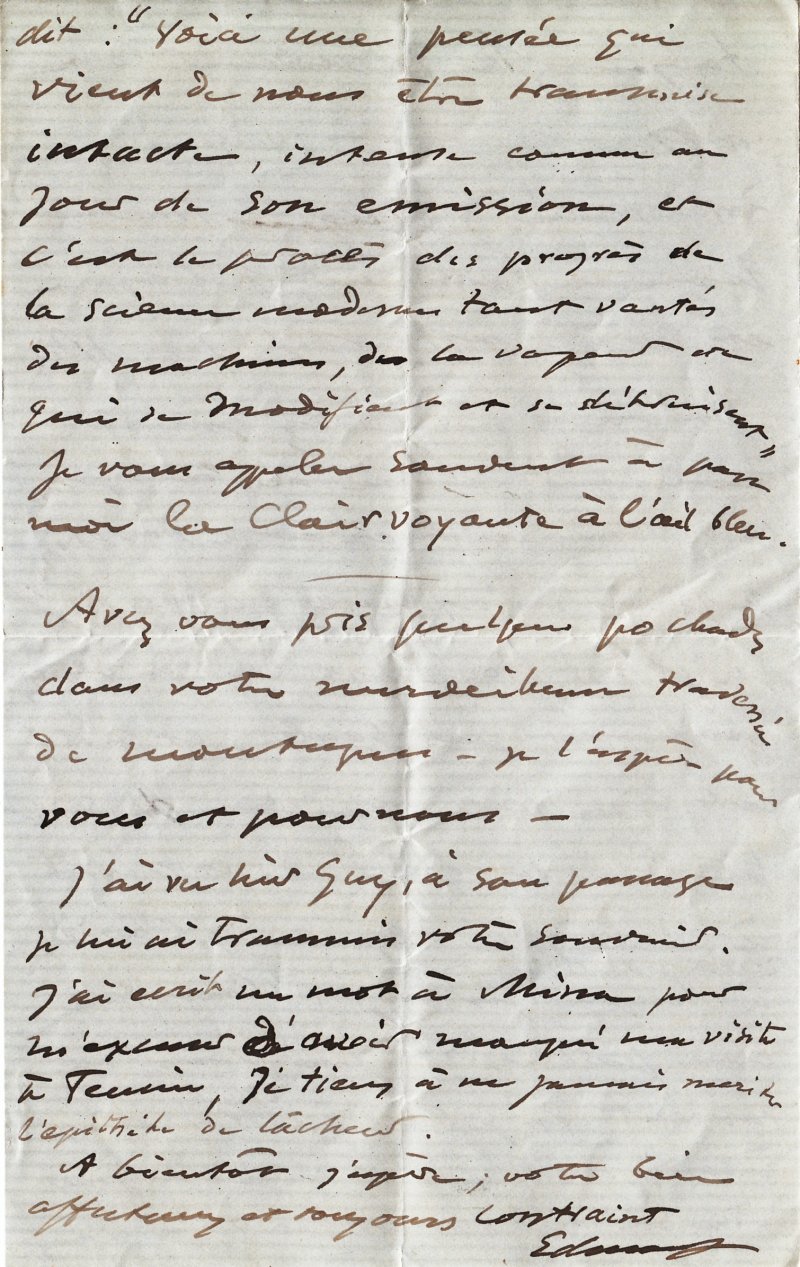 dit : "Voici une pensée qui
vient de nous être transmise
intacte, intense comme au
jour de son emission, et
c'est le procès des progrès de
la science moderne tant vantés
des machines, de la vapeur
qui se modifient et se détruisent"
Je vous appelle souvent à part
moi la Clairvoyante à l'œil bleu.
Avez vous pris quelques pochades
dans votre merveilleuse traversée
de montagnes - je l'espère pour
vous et pour nous -
J'ai vu hier Guy, à son passage
je lui ai transmis votre souvenir.
J'ai ecrit un mot à Mina pour
m'excuser d'avoir manqué ma visite
à , Je tiens à ne jamais meriter
l'epithète de lâcheur.
A bientôt j'espère, votre bien
affectueux et toujours contraint